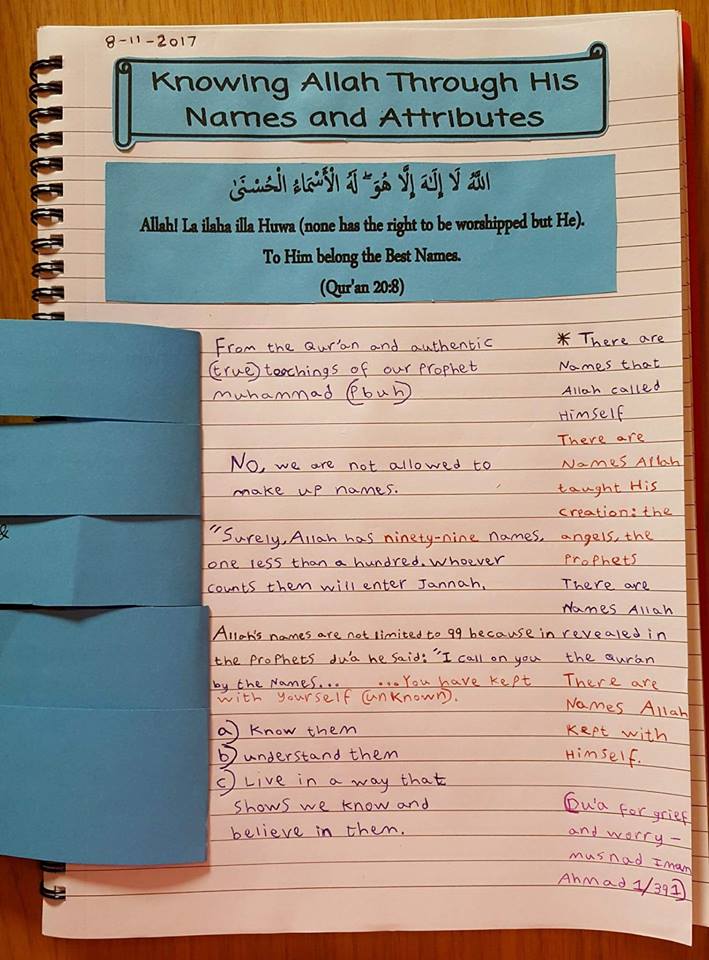 8-11-2017
Knowing Allah Through His
Names and Attributes
اللَّهُ لَا إِلَٰهَ إِلَّا هُوَ ۖ لَهُ الْأَسْمَاءُ الْحُسْنَىٰ
Allah! La ilaha illa Huwa (none has the right to be worshipped but He).
To Him belong the Best Names.
(Qur'an 20:8)
From the Qur'an and authentic
(true) teachings of our Prophet
Muhammad (Pbuh)
No, we are not allowed to
make up names.
"Surely, Allah has ninety-nine names,
one less than a hundred. whoever
counts them will enter Jannah.
Allah's names are not limited to 99 because in
the Prophets du'a he said: "I call on you
by the Names... ...You have kept
with yourself (unknown).
a) Know them
b) understand them
c) Live in a way that
shows we know and
believe in them.
* There are
Names that
Allah called
Himself
There are
Names Allah
taught His
creation: the
angels, the
Prophets
There are
Names Allah
revealed in
the Qurán
There are
Names Allah
Kept with
Himself.
(Du'a for grief
and worry -
musnad Imam
Ahmad 1/391)
&